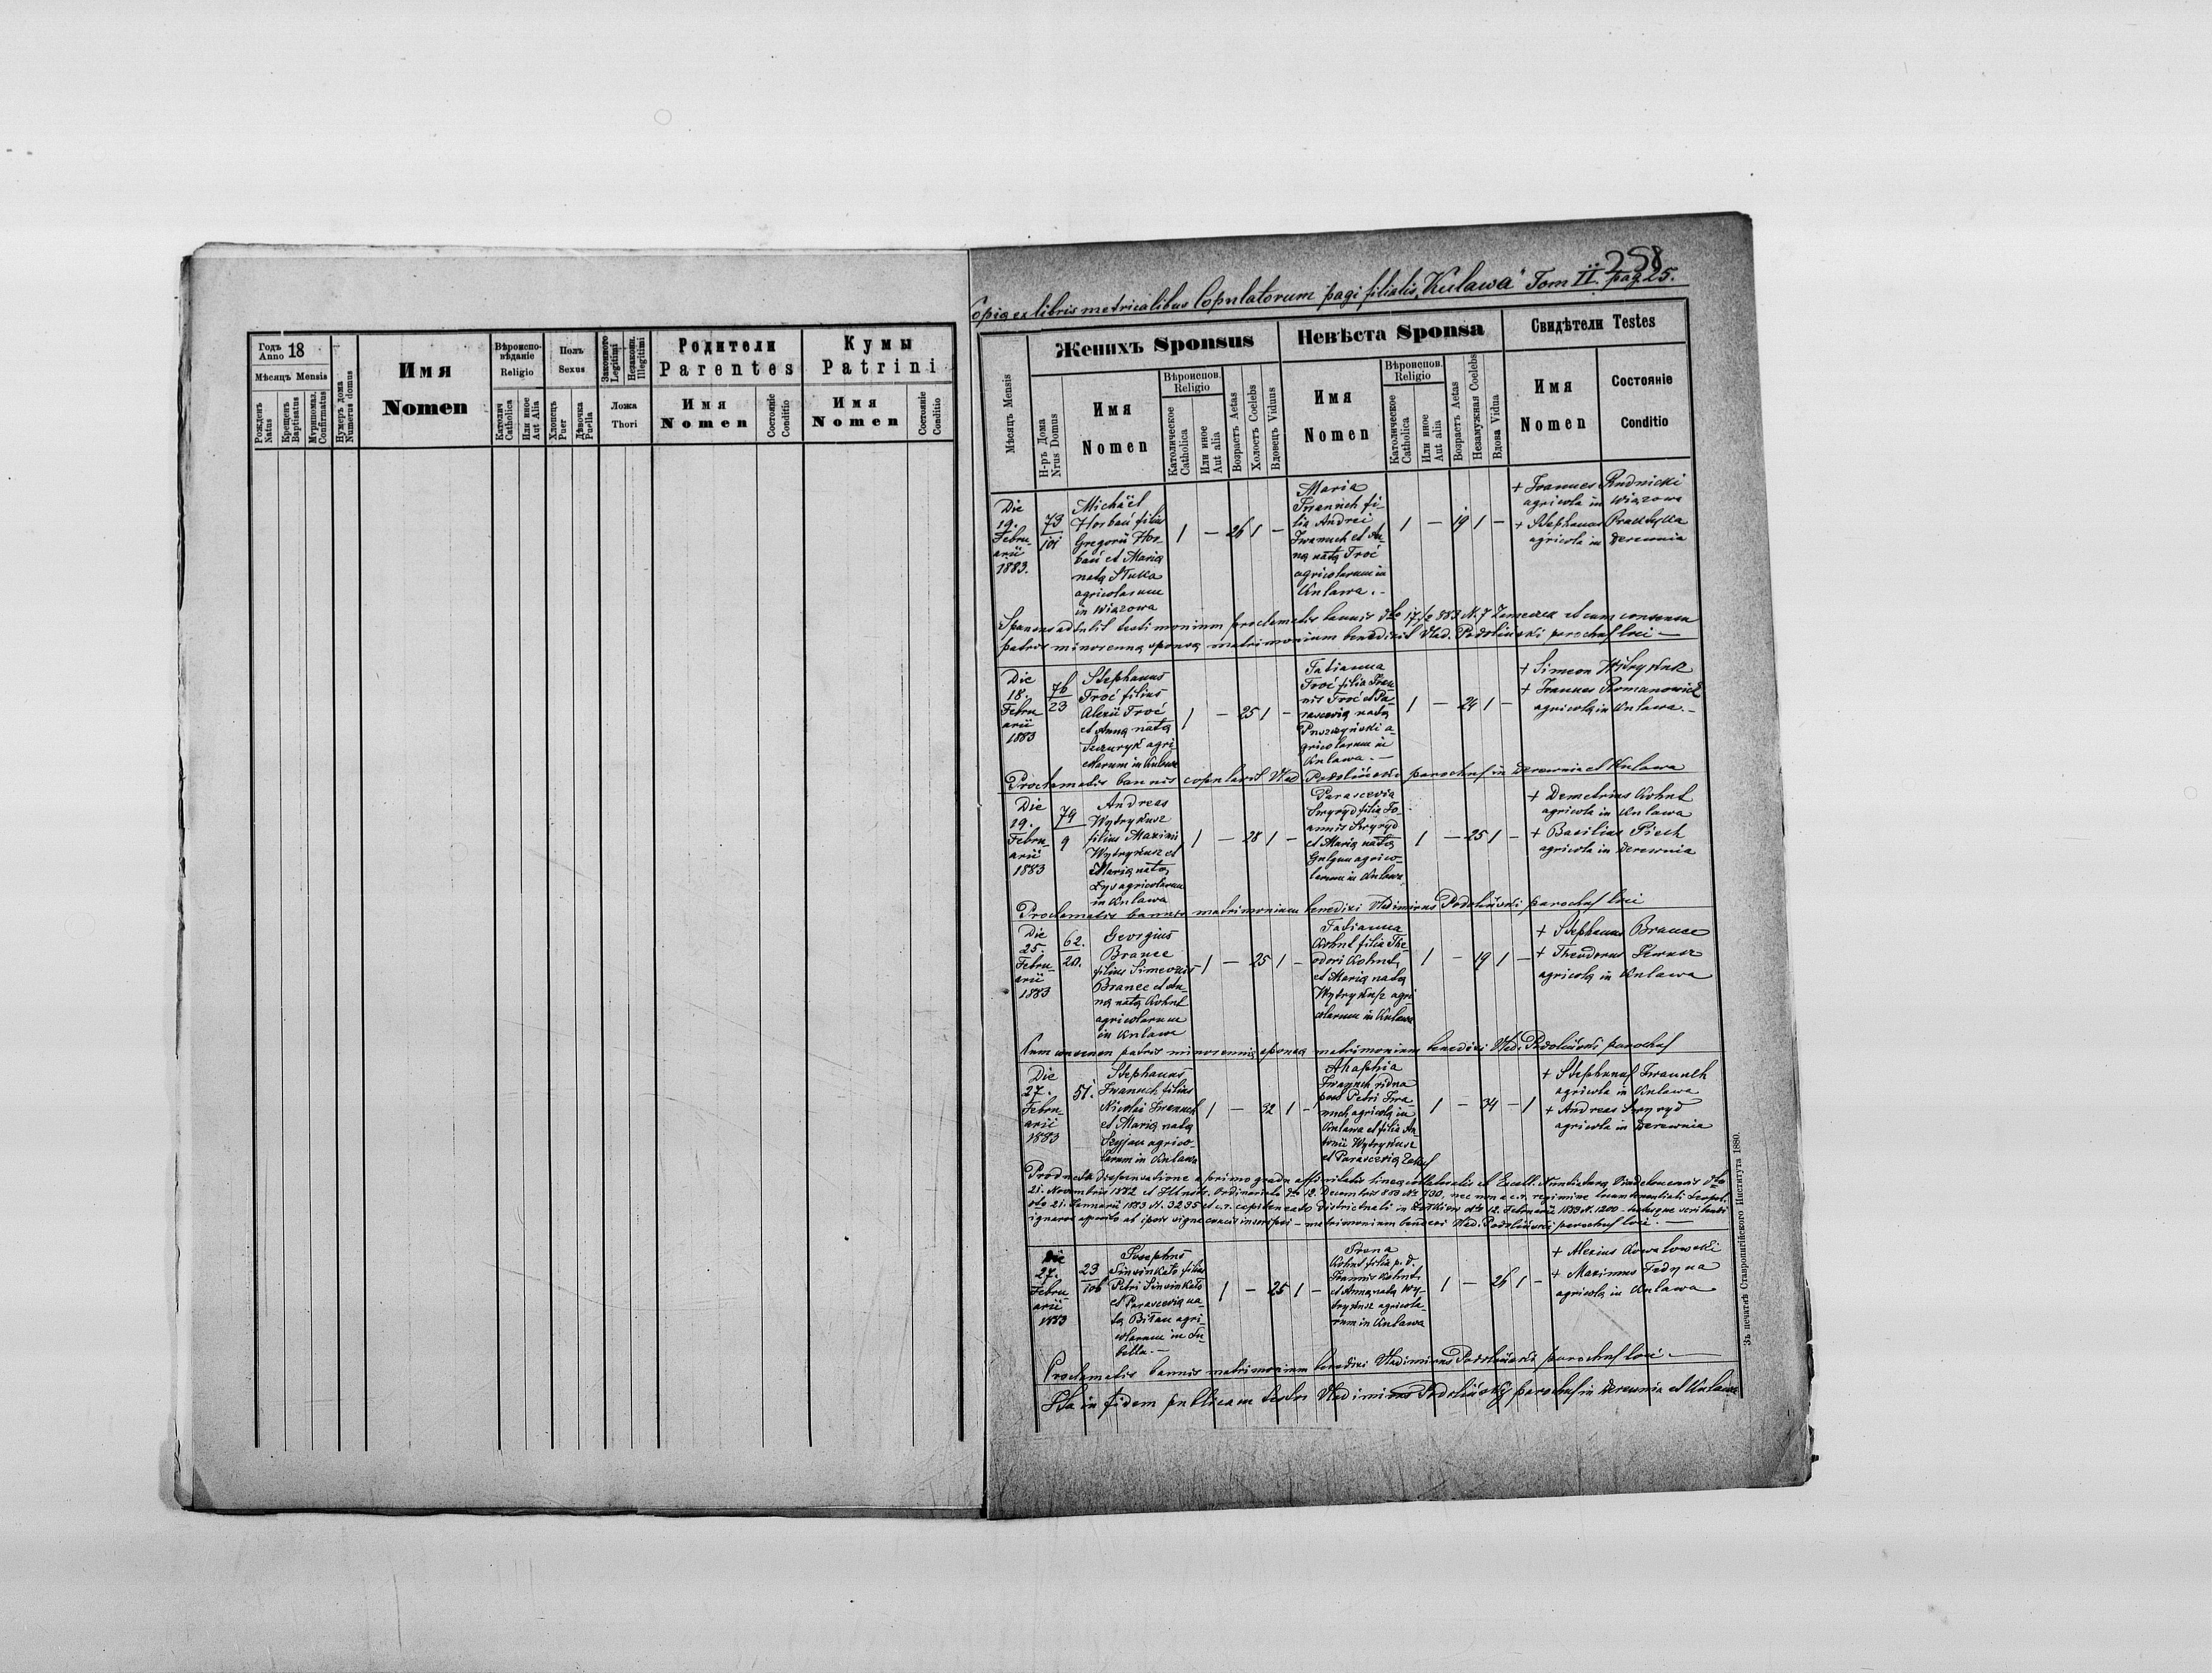 Годъ
Anno 18
Мѣсяцъ Mensis
Рожденъ
Natus
Крещенъ
Baptisatus
Мvропомаз.
Confirmatus
Нумеръ дома
Numerus domus
Имя
Nomen
Вѣроиспо-
вѣданіе
Religio
Католич
Catholica
Или иное
Aut Alia
Полъ
Sexus
Хлопецъ
Puer
Дѣвочка
Puella
Законного
Legitimi
Незаконн.
Illegitimi
Ложа
Thori
Родители
Parentes
Имя
Nomen
Состояніе
Conditio
Кумы
Patrini
Имя
Nomen
Состояніе
Conditio
258
Copia ex libris metricalibus Copulatorum pagi filialis „Kulawa" Tom II. pag. 25.
Мѣсяцъ Mensis
Женихъ Sponsus
Н-ръ Дома
Nrus Domus
Имя
Nomen
Вѣроиспов.
Religio
Католическое
Catholica
Или иное
Aut alia
Возрастъ Aetas
Холостъ Coelebs
Вдовецъ Viduus
Невѣста Sponsa
Имя
Nomen
Вѣроиспов.
Religio
Католическое
Catholica
Или иное
Aut alia
Возрастъ Aetas
Незамужная Coelebs
Вдова Vidua
Свидѣтели Testes
Имя
Nomen
Состояніе
Conditio
Die
19.
Febru-
arii
1883.
73
101
Michaël
Horbań filius
Gregorii Hor-
bań et Maria
nata Stuka
agricolarum
in Wiązowa
1 — 26 1 —
Maria
Iwanuch fi-
lia Andrei
Iwanuch et An-
na nata Troć
agricolarum in
Kulawa.
1 — 19 1 —
+ Joannes Rudnicki
agricola in Wiązowa
+ Stephanus
agricola in Derewnia
Sponsus adtulit testimonium proclamatis bannis dto 17/2 883 N. 7 et cum consensu
patris minorenna sponsa matrimonium benedixit Vlad. Podoliński parochus loci —
Die
18.
Febru-
arii
1883
76
23
Stephanus
Troć filius
Alexii Troć
et Anna nata
Szczuryk agri-
colarum in Kulawa
1 — 25 1 —
Tatianna
Troć filia Ioan-
nis Troć et Pa-
rascevia nata
Puszczyński a-
gricolarum in
Kulawa. —
1 — 24 1 —
+ Simeon Wytrykusz
+ Joannes Romanowicz
agricola in Kulawa. —
Proclamatis bannis copulavit Vlad. Podoliński parochus in Derewnia et Kulawa
Die
19.
Febru-
arii
1883
79
9
Andreas
Wytrykusz
filius Maximi
Wytrykusz et
Maria nata
Lys agricolarum
in Kulawa
1 — 28 1 —
Parascevia
Swyryd filia Jo-
annis Swyryd
et Maria nata
agrico-
larum in Kulawa
1 — 25 1 —
+ Demetrius Kohut
agricola in Kulawa
+ Basilius Piech
agricola in Derewnia
Proclamatis bannis matrimonium benedixi Vladimirus Podoliński parochus loci
Die
25.
Febru-
arii
1883
62.
20.
Georgius
Brance
filius Simeonis
Brance et An-
na nata Kohut
agricolarum
in Kulawa
1 — 25 1 —
Tatianna
Kohut filia The-
odori Kohut
et Maria nata
Wytrykusz agri-
colarum in Kulawa
1 — 19 1 —
+ Stephanus Brance
+ Theodorus
agricola in Kulawa
Cum consensu patris minorennis sponsa matrimonium benedixi Vlad. Podoliński parochus
Die
27.
Febru-
arii
1883
51.
Stephanus
Iwanuch filius
Nicolai Iwanuch
et Maria nata
agrico-
larum in Kulawa
1 — 32 1 —
Ahaphia
Iwanuch vidua
post Petri Iwa-
nuch agricola in
Kulawa et filia An-
tonii Wytrykusz
et Parascevia
1 — 34 — 1
+ Stephanus Iwanuch
agricola in Kulawa
+ Andreas Swyryd
agricola in Derewnia
Producta dispensatione a primo gradu affinitatis linea collateralis et Excell. Nuntiatura Vindobonensis dto
21. Novembris 1882 et Ordinariatu dto 12. Decembris 883 N. 730, nec non a c. r. regimine locumtenentiali Leopol.
dto 21. Januarii 1883 N. 3235 et c. r. capitaneato districtuali in Zołkiew dto 12. Februarii 1883 N. 1200 — testesque scribendi
ignaros ipsos signa crucis — matrimonium benedixi Vlad. Podoliński parochus loci. —
Die
27.
Febru-
arii
1883
23
106
Josephus
filius
Petri
et Parascevia na-
ta Biłan agri-
colarum in Lu-
bella. —
1 — 25 1 —
Irena
Kohut filia p. d.
Joannis Kohut
et Anna nata Wy-
trykusz agricola-
rum in Kulawa
1 — 26 1 —
+ Alexius Kowalowski
+ Maximus Fedyna
agricola in Kulawa
Proclamatis bannis matrimonium benedixi Vladimirus Podoliński parochus loci —
Ita in fidem publicam testor Vladimirus Podolińskij parochus in Derewnia et Kulawa
Зъ печатнѣ Ставропигійского Института 1880.